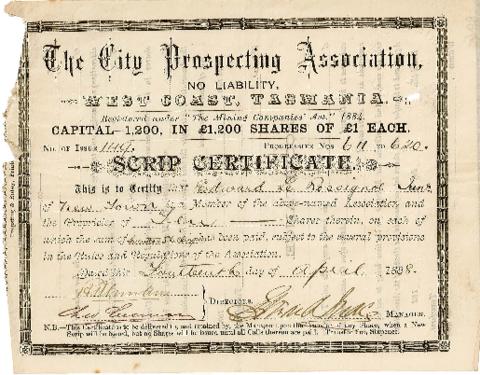 The City Prospecting Association,
NO LIABILITY,
WEST COAST, TASMANIA.
Registered under "The Mining Companies' Act," 1884.
CAPITAL—1,200, IN £1,200 SHARES OF £1 EACH.
No. of Issue 111 Progressive Nos 611 to 620.
SCRIP CERTIFICATE.
This is to Certify that Edward Jun
of New Town is a Member of the above-named Association, and
the Proprietor of Ten Shares therein, on each of
which the sum of has been paid, subject to the several provisions
in the Rules and Regulations of the Association.
Dated this Fourteenth day of April 1888.
DIRECTORS.
MANAGER.
N.B.—This Certificate to be delivered to and retained by the Manager upon the transfer of any Share, when a New
Scrip will be issued, but no Shares will be issued until all Calls thereon are paid. Transfer Fee, Sixpence.